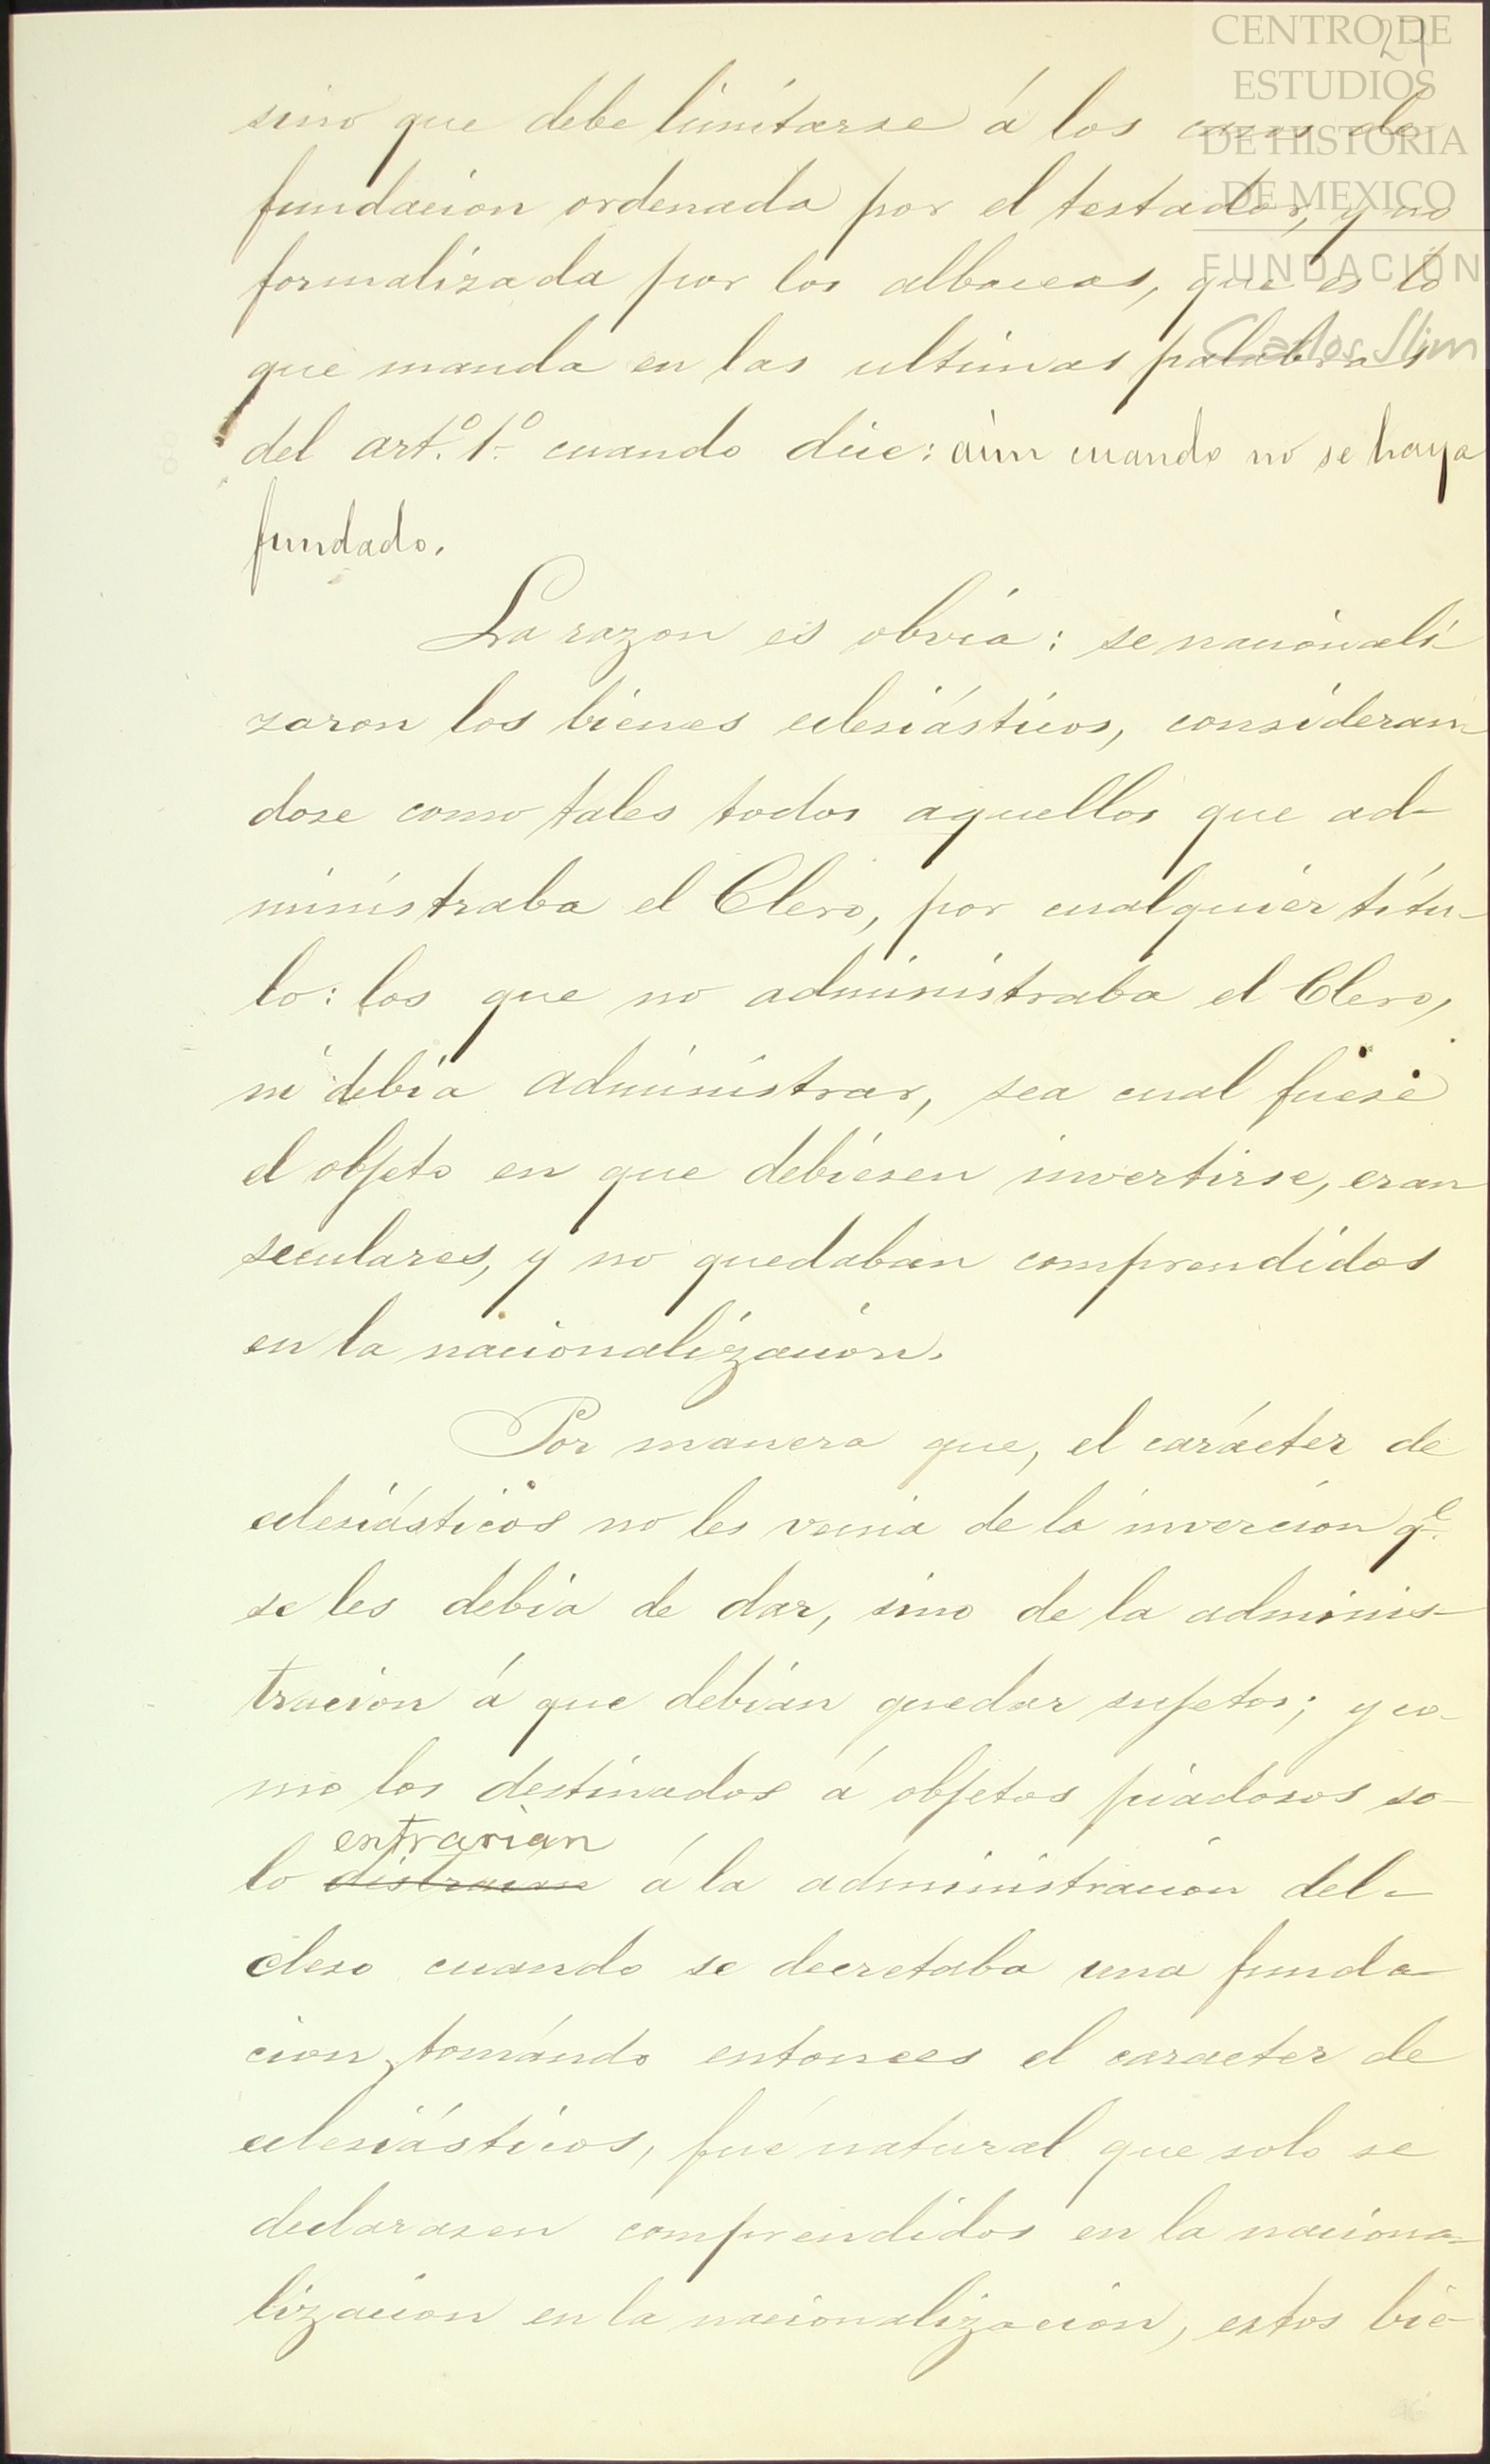 CENTRO DE
ESTUDIOS
DE HISTORIA
DE MEXICO
FUNDACIÓN
Carlos Slim
27
sino que debe limitarse á los casos de
fundacion ordenada por el testador, y no
formalizada por los albaceas, que es lo
que manda en las ultimas palabras
del art.º 1º cuando dice: aun cuando no se haya
fundado.
La razon es obvia: se nacionali
zaron los bienes eclesiásticos, consideran
dose como tales todos aquellos que ad-
ministraba el Clero, por cualquier títu-
lo: los que no administraba el Clero,
ni debia administrar, sea cual fuese
el objeto en que debiesen invertirse, eran
seculares, y no quedaban comprendidos
en la nacionalizacion.
Por manera que, el carácter de
eclesiásticos no les venia de la invercion q.e
se les debia de dar, sino de la adminis-
tracion á que debian quedar sujetos; y co-
mo los destinados á objetos piadosos so-
entrarian
lo distraian á la administracion del-
clero cuando se decretaba una funda-
cion, tomándo entonces el caracter de
eclesiásticos, fué natural que solo se
declarasen comprendidos en la naciona-
lizacion en la nacionalizacion, estos bie-